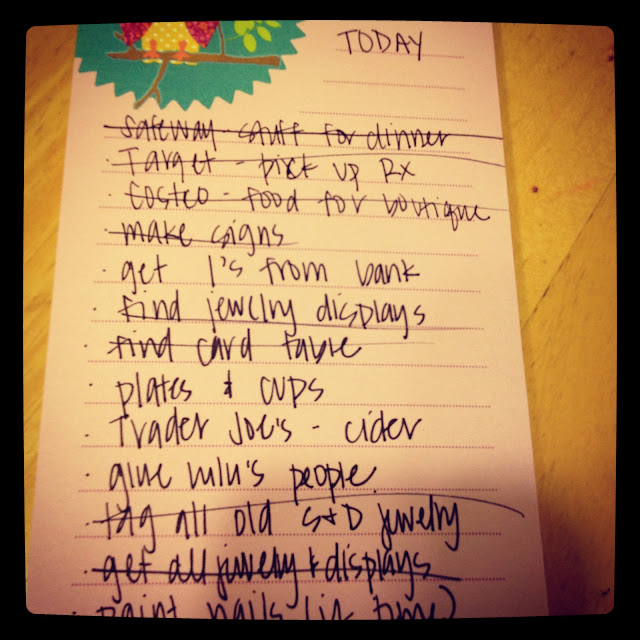 TODAY
Safeway - stuff for dinner
· Target - pick up Rx
· Costco - food for boutique
· make signs
· get 1's from bank
· find jewelry displays
· find card table
· plates & cups
· Trader Joe's - cider
· glue lulu's people
· tag all old S+D jewelry
· get all jewelry & displays
· paint nails (if time)